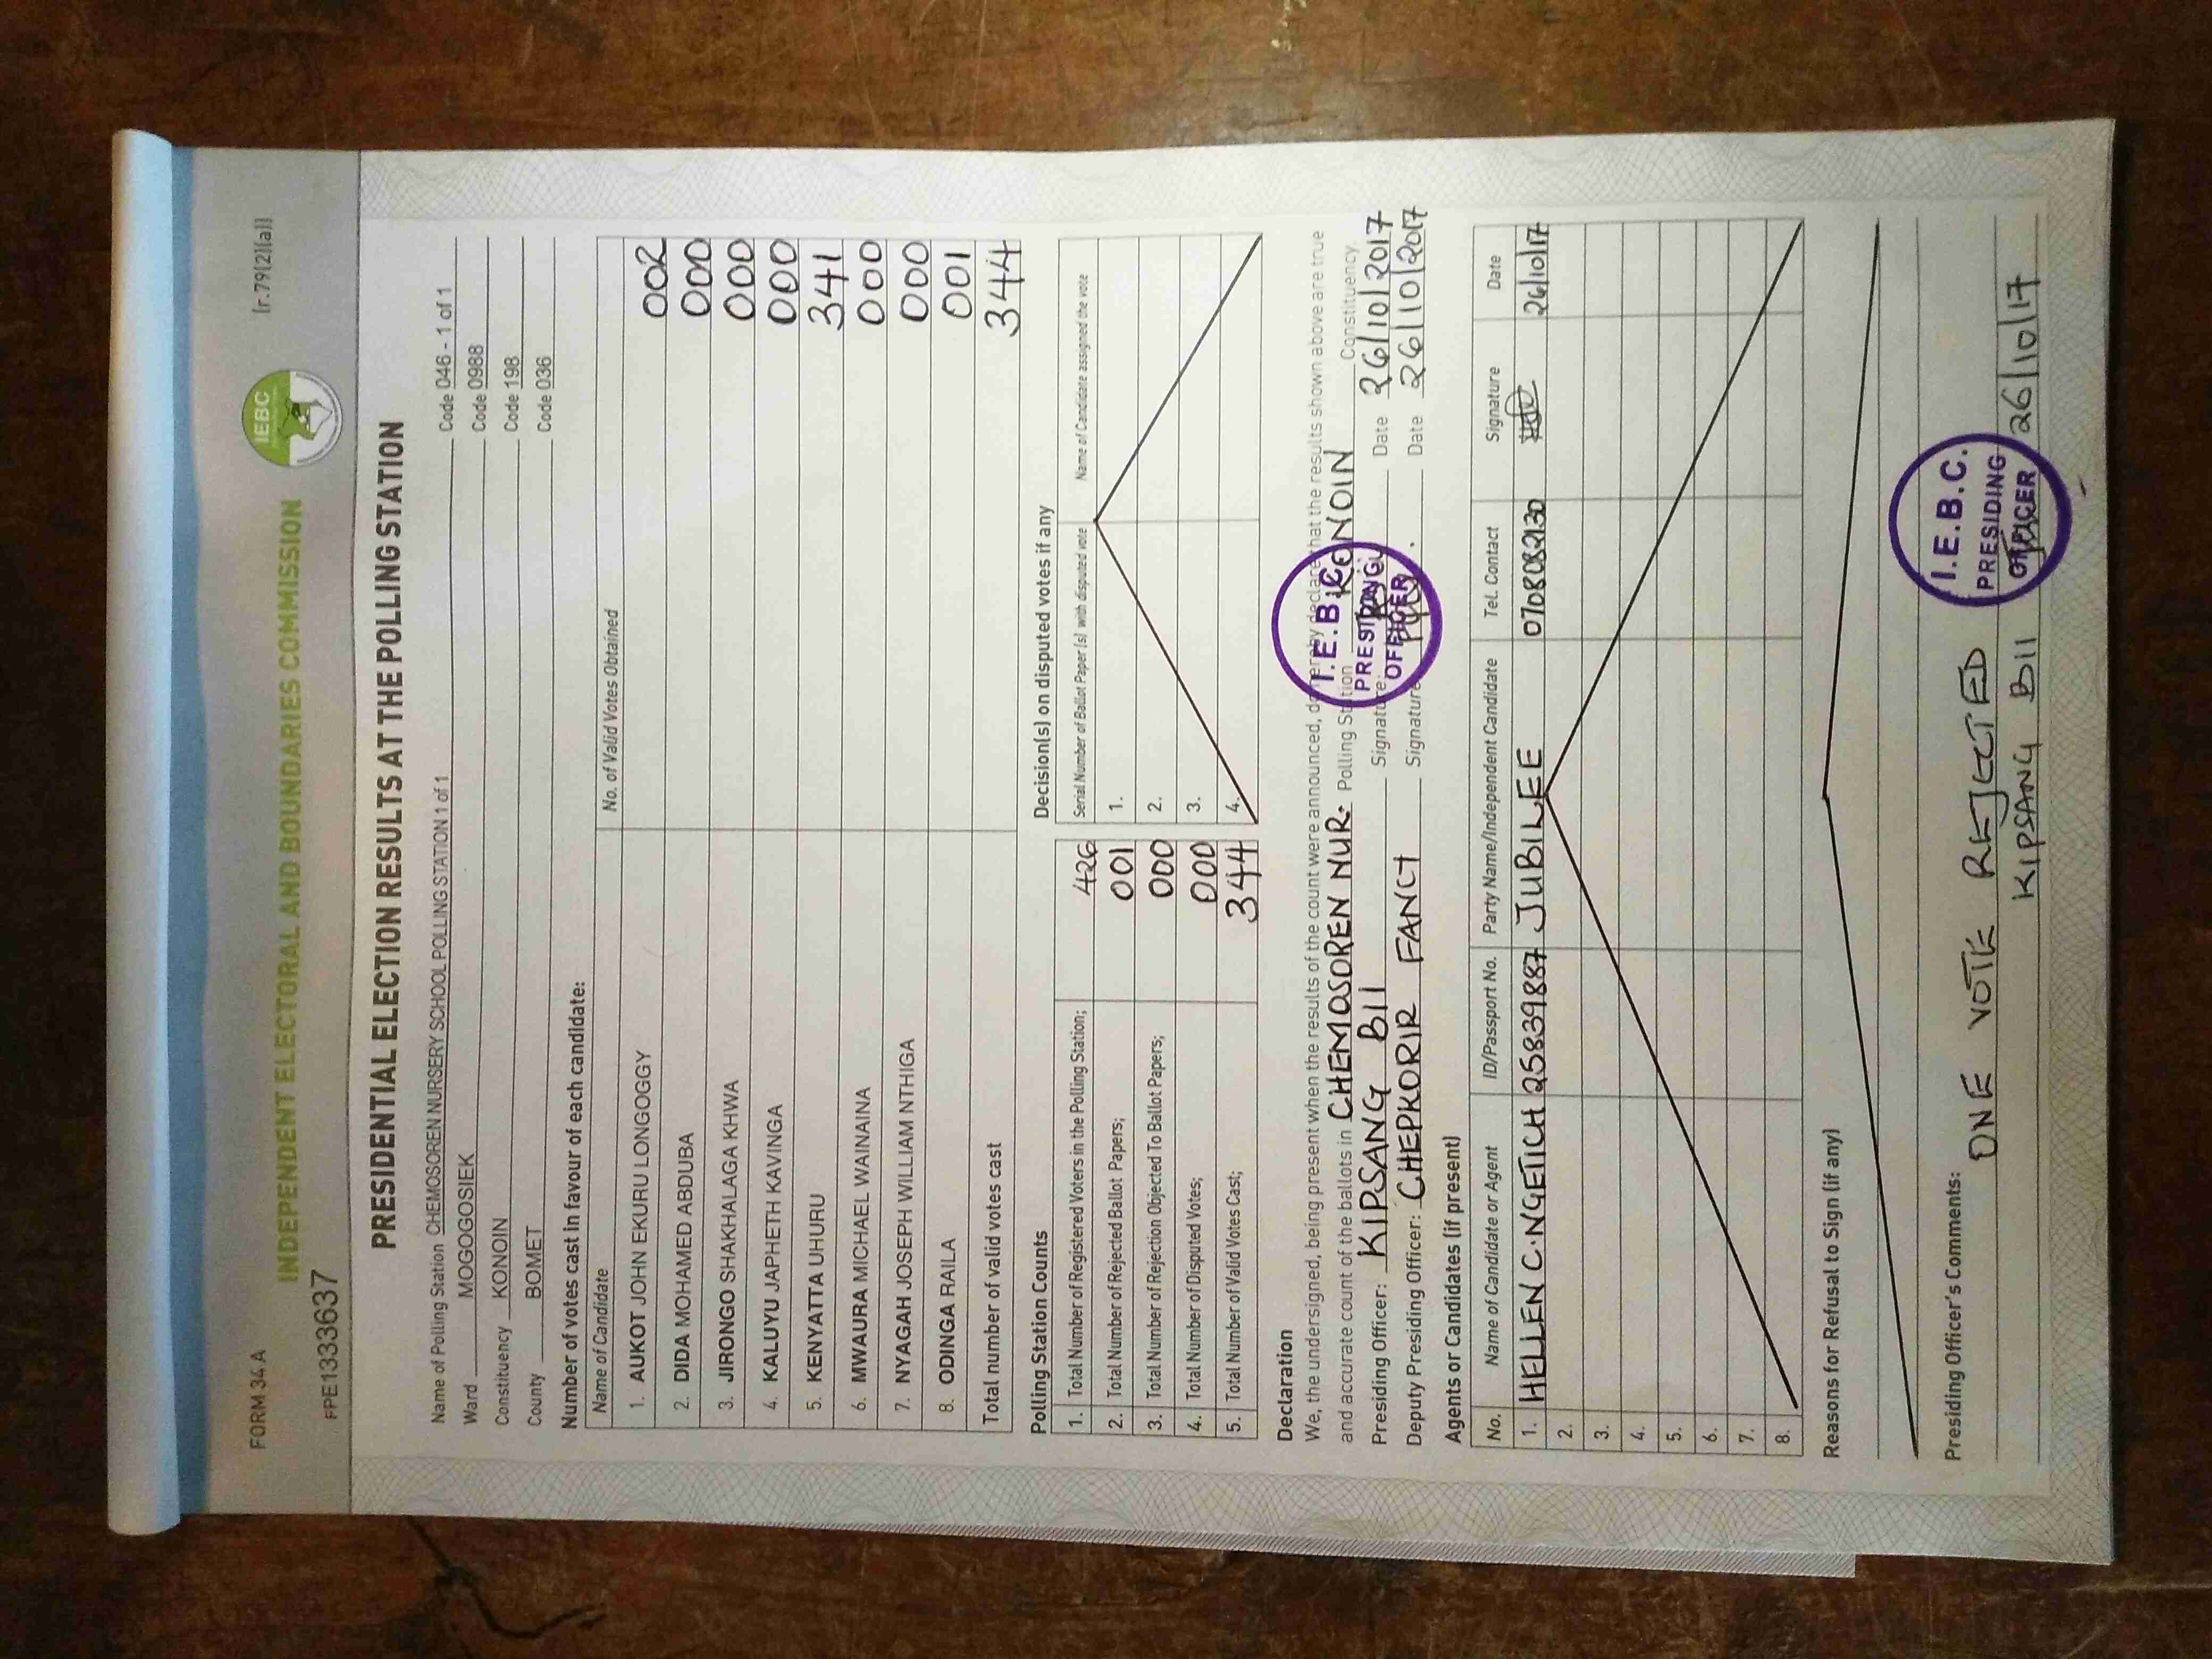 FORM 34 A
[r.79(2)(a)]
IEBC
INDEPENDENT ELECTORAL AND BOUNDARIES COMMISSION
FPE1333637
PRESIDENTIAL ELECTION RESULTS AT THE POLLING STATION
Name of Polling Station CHEMOSOREN NURSERY SCHOOL POLLING STATION 1 of 1 Code 046 - 1 of 1
Ward MOGOGOSIEK Code 0988
Constituency KONOIN Code 198
County BOMET Code 036
Number of votes cast in favour of each candidate:
Name of Candidate No. of Valid Votes Obtained
1. AUKOT JOHN EKURU LONGOGGY 002
2. DIDA MOHAMED ABDUBA 000
3. JIRONGO SHAKHALAGA KHWA 000
4. KALUYU JAPHETH KAVINGA 000
5. KENYATTA UHURU 341
6. MWAURA MICHAEL WAINAINA 000
7. NYAGAH JOSEPH WILLIAM NTHIGA 000
8. ODINGA RAILA 001
Total number of valid votes cast 344
Polling Station Counts
1. Total Number of Registered Voters in the Polling Station; 426
2. Total Number of Rejected Ballot Papers; 001
3. Total Number of Rejection Objected To Ballot Papers; 000
4. Total Number of Disputed Votes; 000
5. Total Number of Valid Votes Cast; 344
Decision(s) on disputed votes if any
Serial Number of Ballot Paper (s) with disputed vote Name of Candidate assigned the vote
1.
2.
3.
4.
Declaration
We, the undersigned, being present when the results of the count were announced, do hereby declare that the results shown above are true
and accurate count of the ballots in CHEMOSOREN NUR. Polling Station KONOIN Constituency.
Presiding Officer: KIPSANG BII Signature: Date 26/10/2017
Deputy Presiding Officer: CHEPKORIR FANCT Signature Date 26/10/2017
I.E.B.C.
PRESIDING
OFFICER
Agents or Candidates (if present)
No. Name of Candidate or Agent ID/Passport No. Party Name/Independent Candidate Tel. Contact Signature Date
1. HELLEN C. NGETICH 25839887 JUBILEE 0708082130 26/10/17
2.
3.
4.
5.
6.
7.
8.
Reasons for Refusal to Sign (if any)
Presiding Officer's Comments:
ONE VOTE REJECTED
KIPSANG BII 26/10/17
I.E.B.C.
PRESIDING
OFFICER